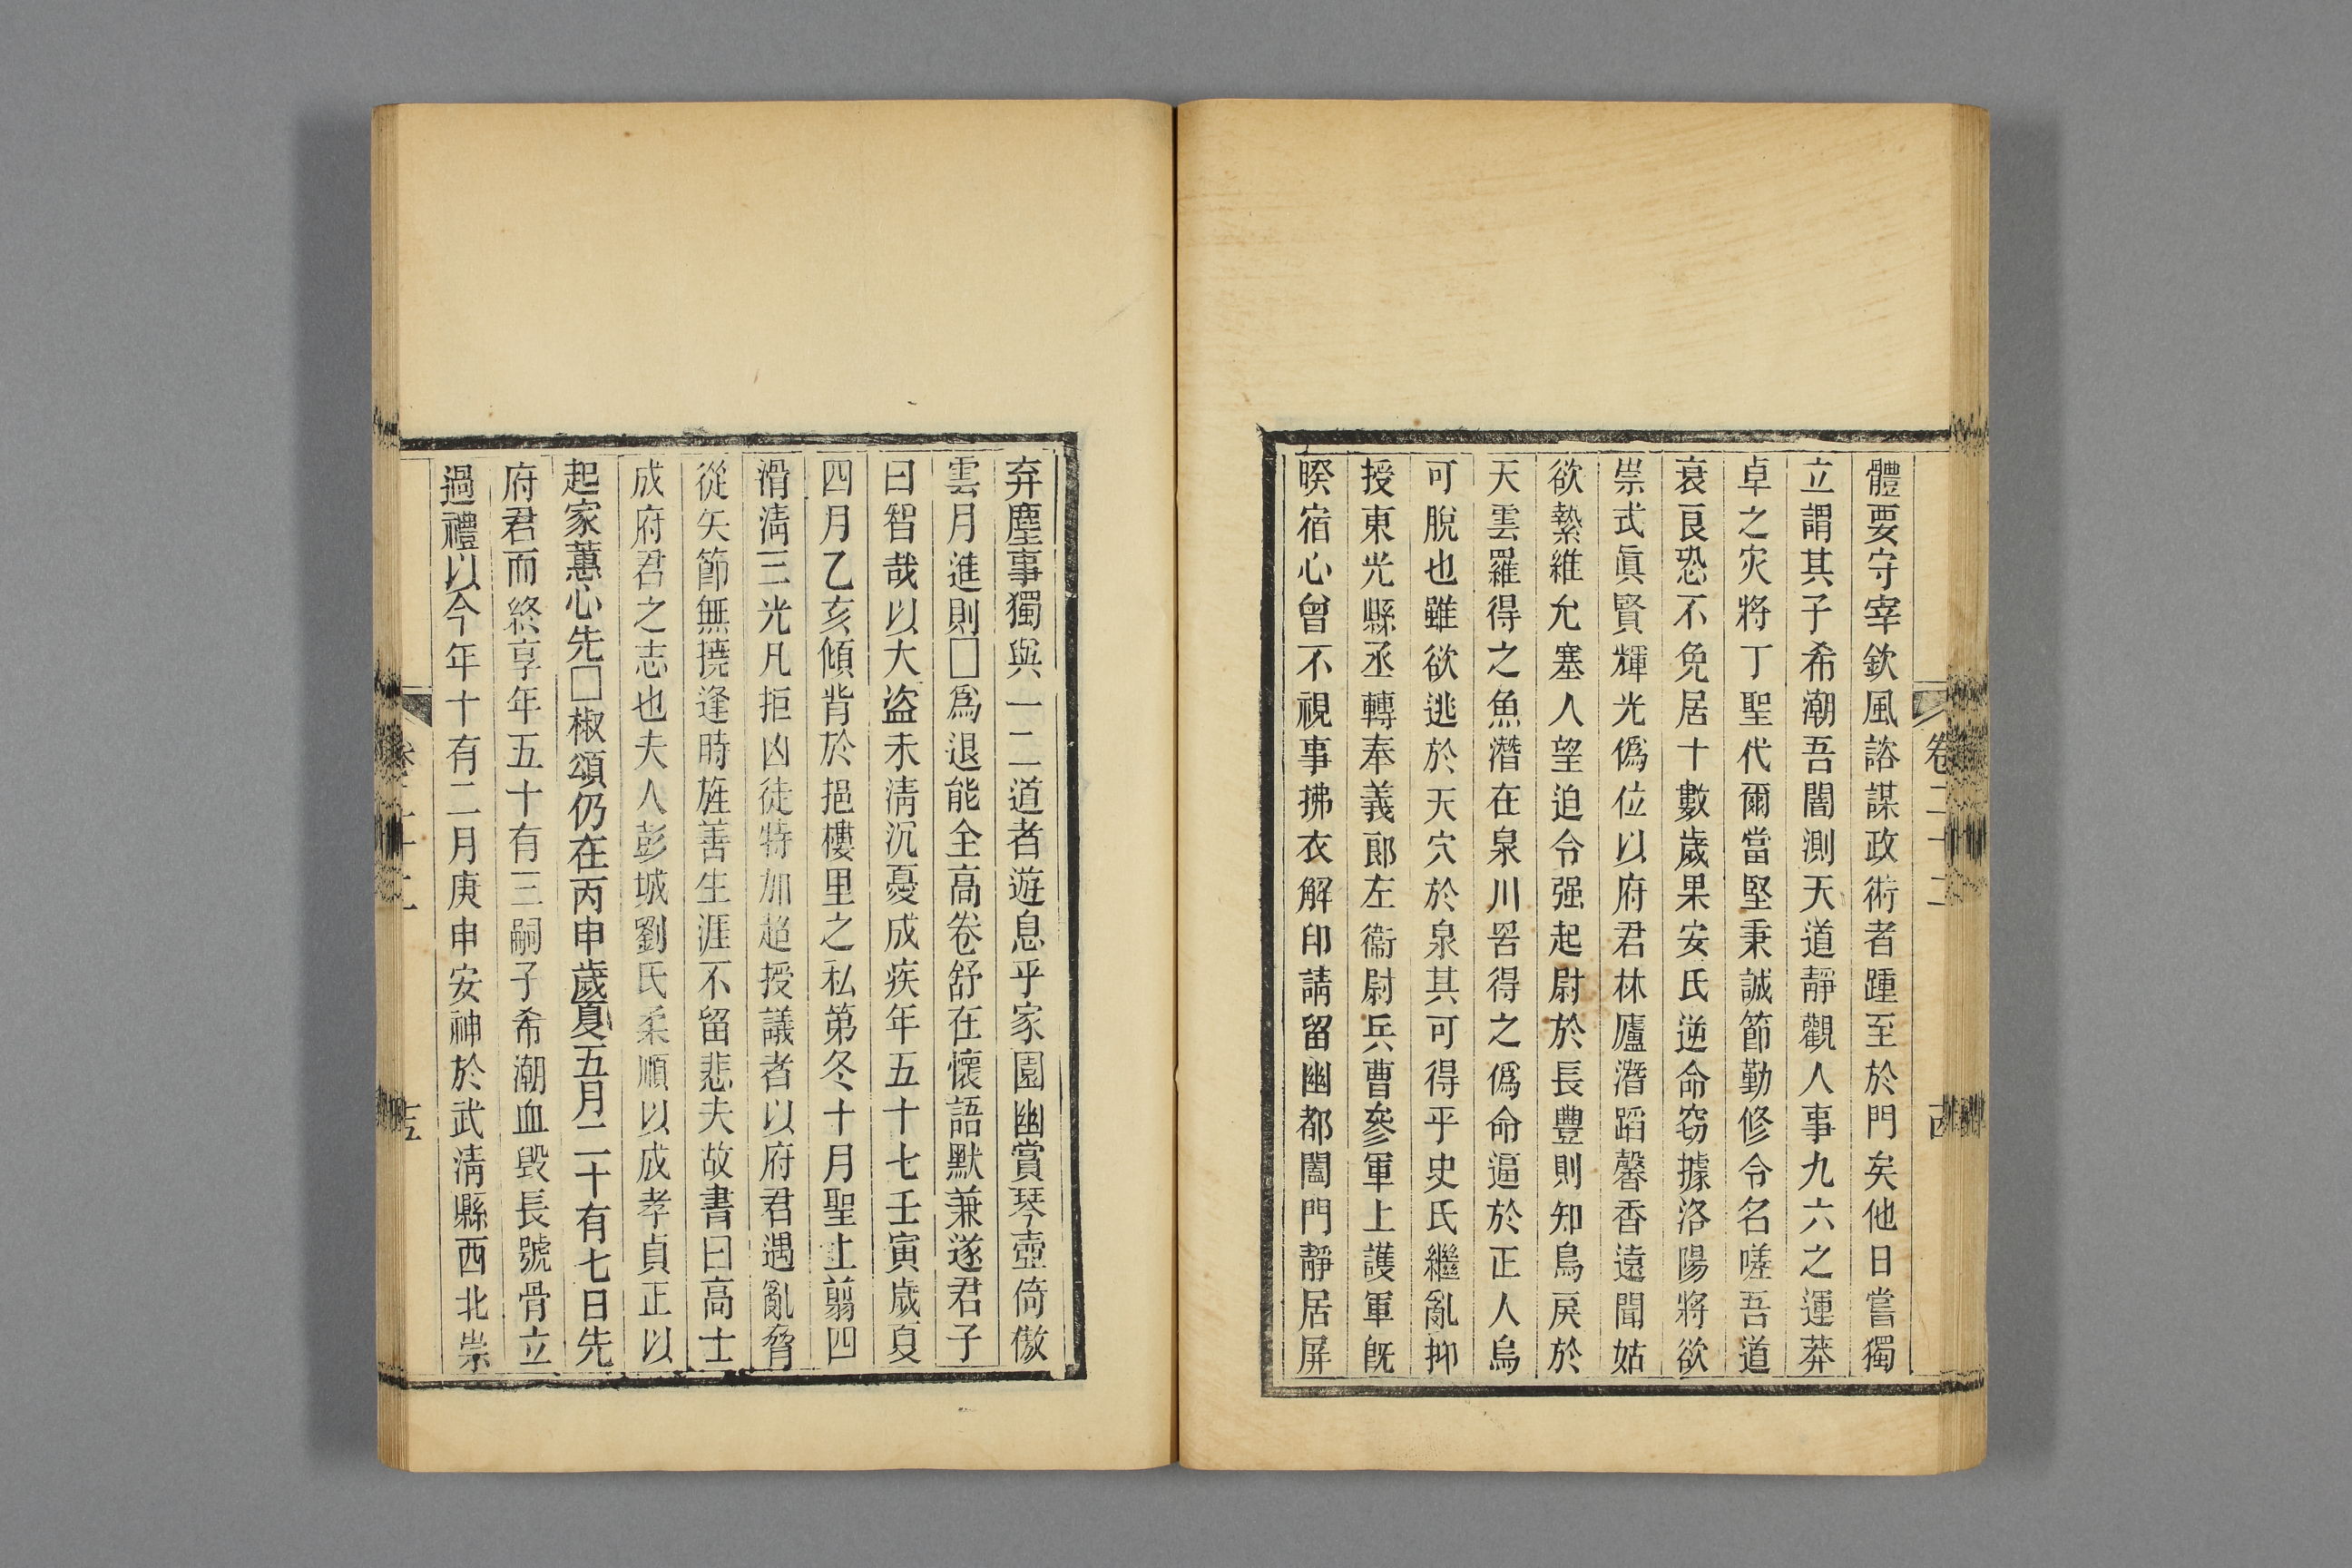 體要守宰欽風諮謀政術者踵至於門矣他日嘗獨
立謂其子希潮吾闇測天道靜觀人事九六之運莽
卓之灾將丁聖代爾當堅秉誠節勤修令名嗟吾道
衰良恐不免居十數歲果安氏逆命窃據洛陽將欲
崇式眞賢輝光僞位以府君林廬潛蹈馨香遠聞姑
欲縶維允塞人望迫令强起尉於長豐則知鳥戻於
天雲羅得之魚潛在泉川罟得之僞命逼於正人烏
可脫也雖欲逃於天穴於泉其可得乎史氏繼亂抑
授東光縣丞轉奉義郎左衞尉兵曹參軍上護軍旣
暌宿心曾不視事拂衣解印請留幽都闔門靜居屏
卷二十二
古
弃塵事獨與一二道者遊息乎家園幽賞琴壺倚傲
雲月進則□爲退能全高卷舒在懷語默兼遂君子
曰智哉以大盜未淸沉憂成疾年五十七壬寅歲夏
四月乙亥傾背於挹樓里之私第冬十月聖上翦四
滑淸三光凡拒凶徒特加超授議者以府君遇亂脅
從矢節無撓逢時旌善生涯不留悲夫故書曰高士
成府君之志也夫人彭城劉氏柔順以成孝貞正以
起家蕙心先□椒頌仍在丙申歲夏五月二十有七日先
府君而終享年五十有三嗣子希潮血毀長號骨立
過禮以今年十有二月庚申安神於武淸縣西北崇
卷二十二
十五